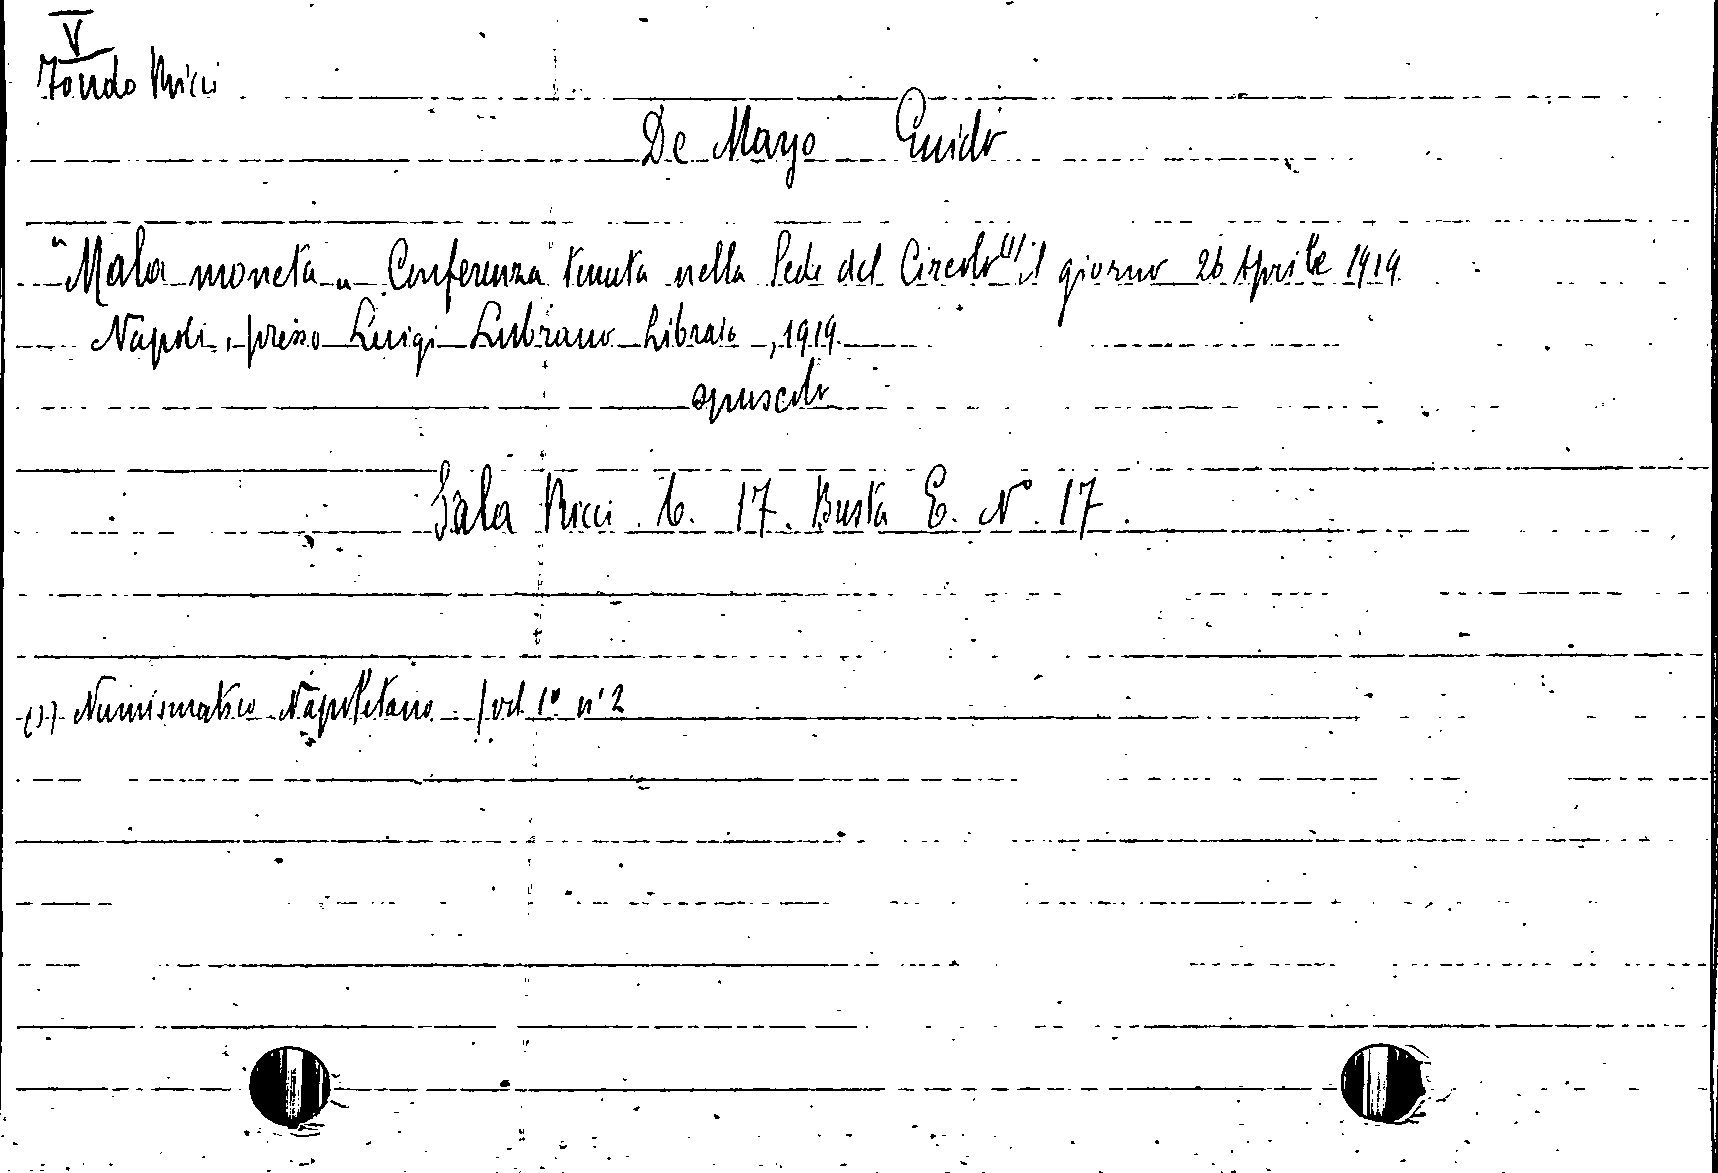 V
Fondo Ricci
De Mayo Guido
"Mala moneta„ Conferenza tenuta nella Sede del Circolo (1) il giorno 26 Aprile 1919
Napoli, presso Luigi Lubrano Libraio, 1919.
opuscolo
Sala Ricci. C. 17. Busta E. N° 17.
(1) Numismatico Napoletano / vol 1° n° 2